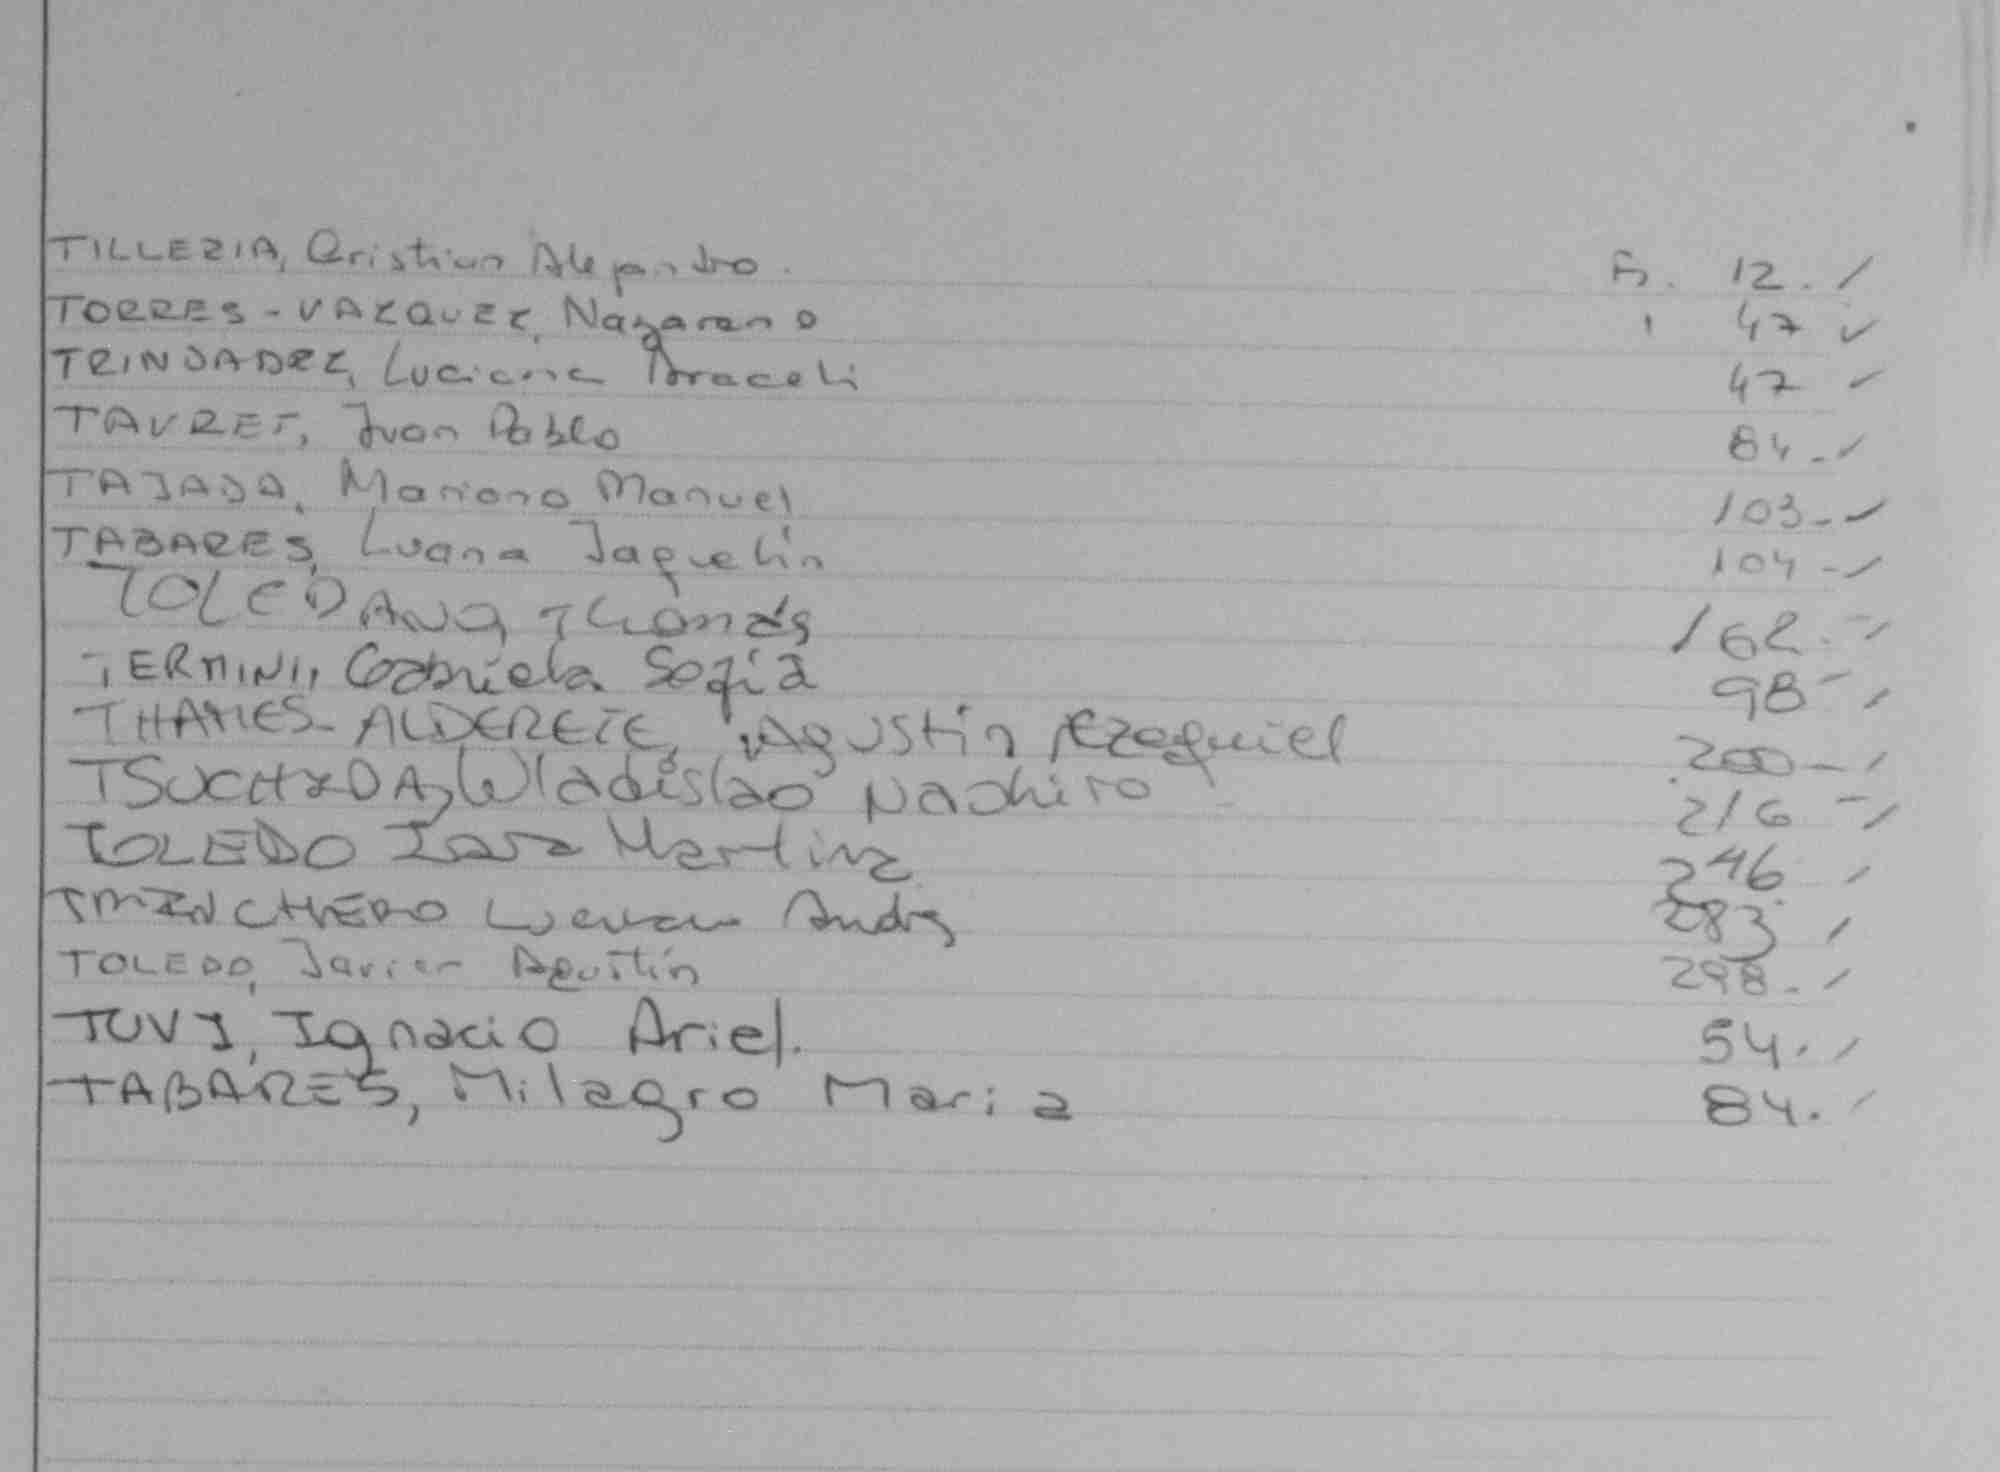 TILLERIA, Cristian Alejandro. Fs. 12.
TORRES-VAZQUEZ, Nazareno 47
TRINDADEZ, Luciana Araceli 47
TAURET, Juan Pablo 84.-
TAJADA, Mariano Manuel 103.-
TABARES, Luana Jaquelin 104.-
TOLEDANO, Thomás 162.-
TERMINI, Gabriela Sofia 98-
THAMES-ALDERETE, Agustin Ezequiel 200-
TSUCHYDA, Wladislao Naohiro 216-
TOLEDO Iara Martina 246
Andrs 283
TOLEDO, Javier Agustín 298.-
TUVI, Ignacio Ariel. 54.
TABARES, Milagro Maria 84.